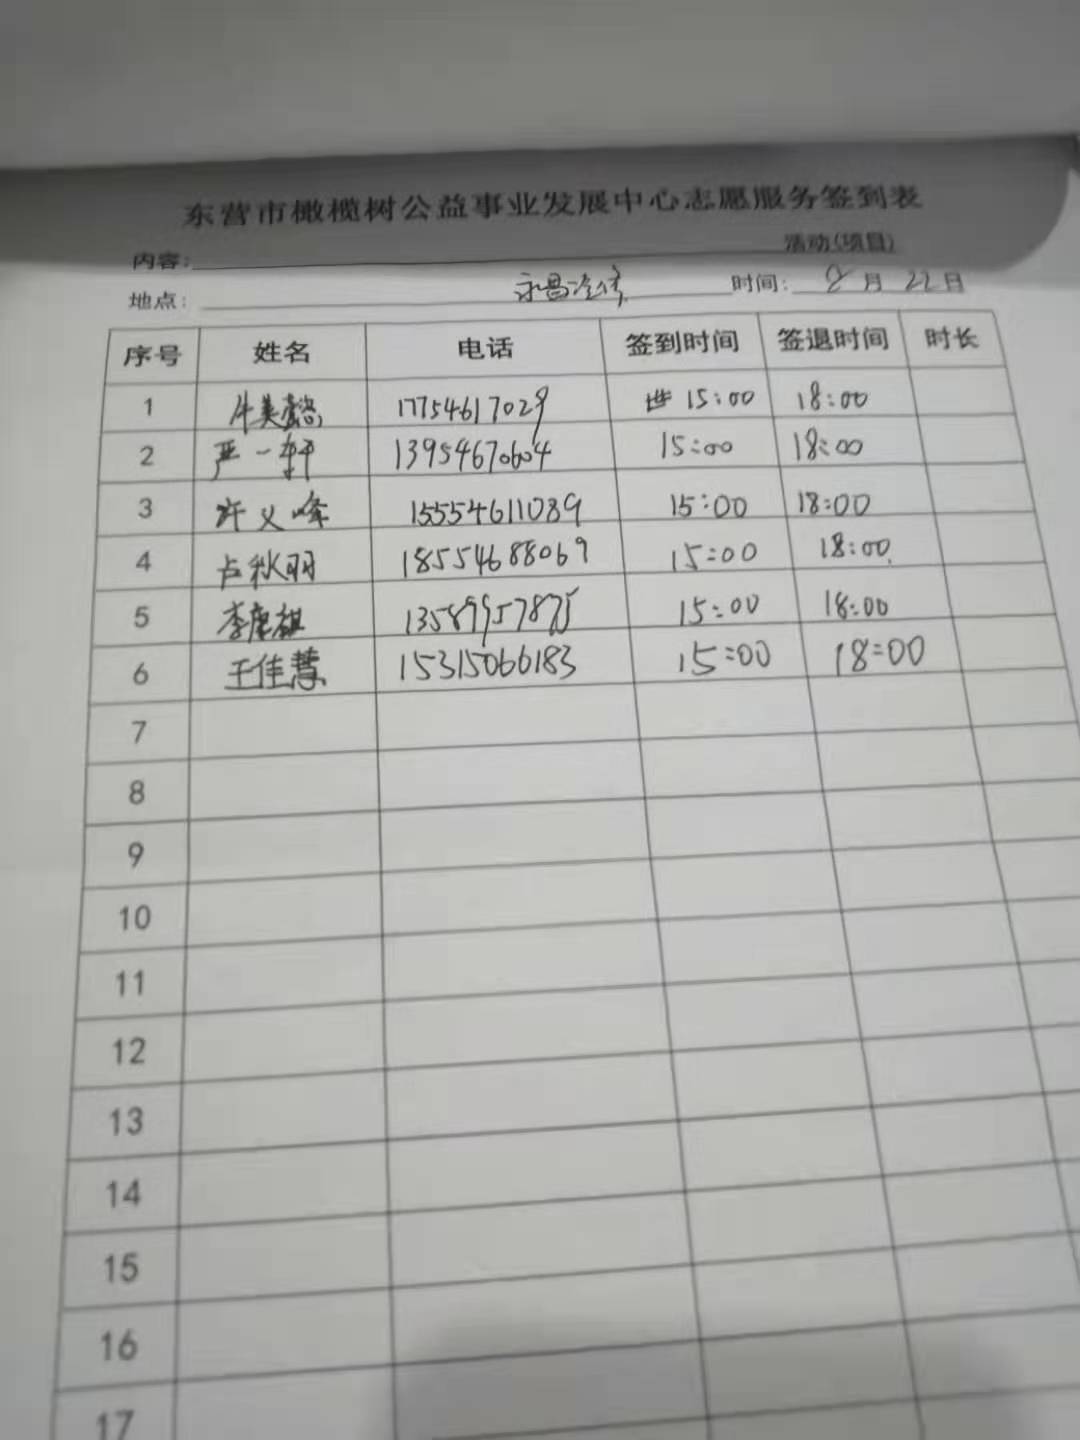 东营市橄榄树公益事业发展中心志愿服务签到表
内容: 活动(项目)
地点: 永昌 时间: 8月22日
序号 姓名 电话 签到时间 签退时间 时长
1 牛美懿 17754617029 15:00 18:00
2 严一轩 13954670604 15:00 18:00
3 许义峰 15554611089 15:00 18:00
4 卢秋羽 18554688069 15:00 18:00
5 李康祺 13589957875 15:00 18:00
6 王佳慧 15315066183 15:00 18:00
7
8
9
10
11
12
13
14
15
16
17